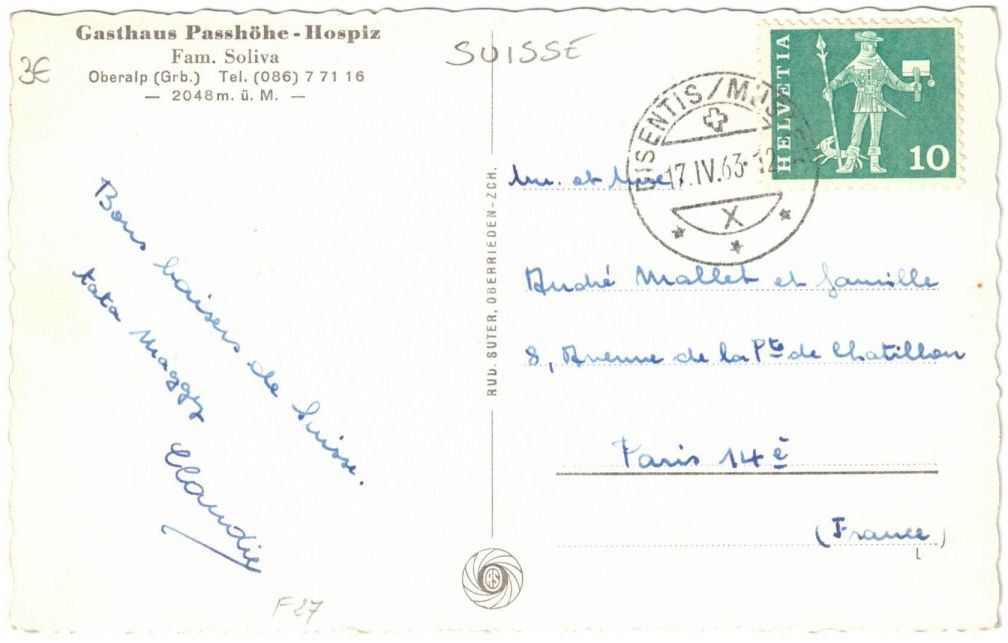 Gasthaus Passhöhe-Hospiz
Fam. Soliva
Oberalp (Grb.) Tel. (086) 7 71 16
— 2048 m. ü. M. —
3€
SUISSE
Bons baisers de Suisse.
tata Maggy
Claudie
F27
RUD. SUTER, OBERRIEDEN-ZCH.
RS
DISENTIS/MUSTÉR
17.IV.63-12
X
HELVETIA
10
Mr. et Mme
André Mallet et famille
8, Avenue de la Pte de Chatillon
Paris 14è
(France)